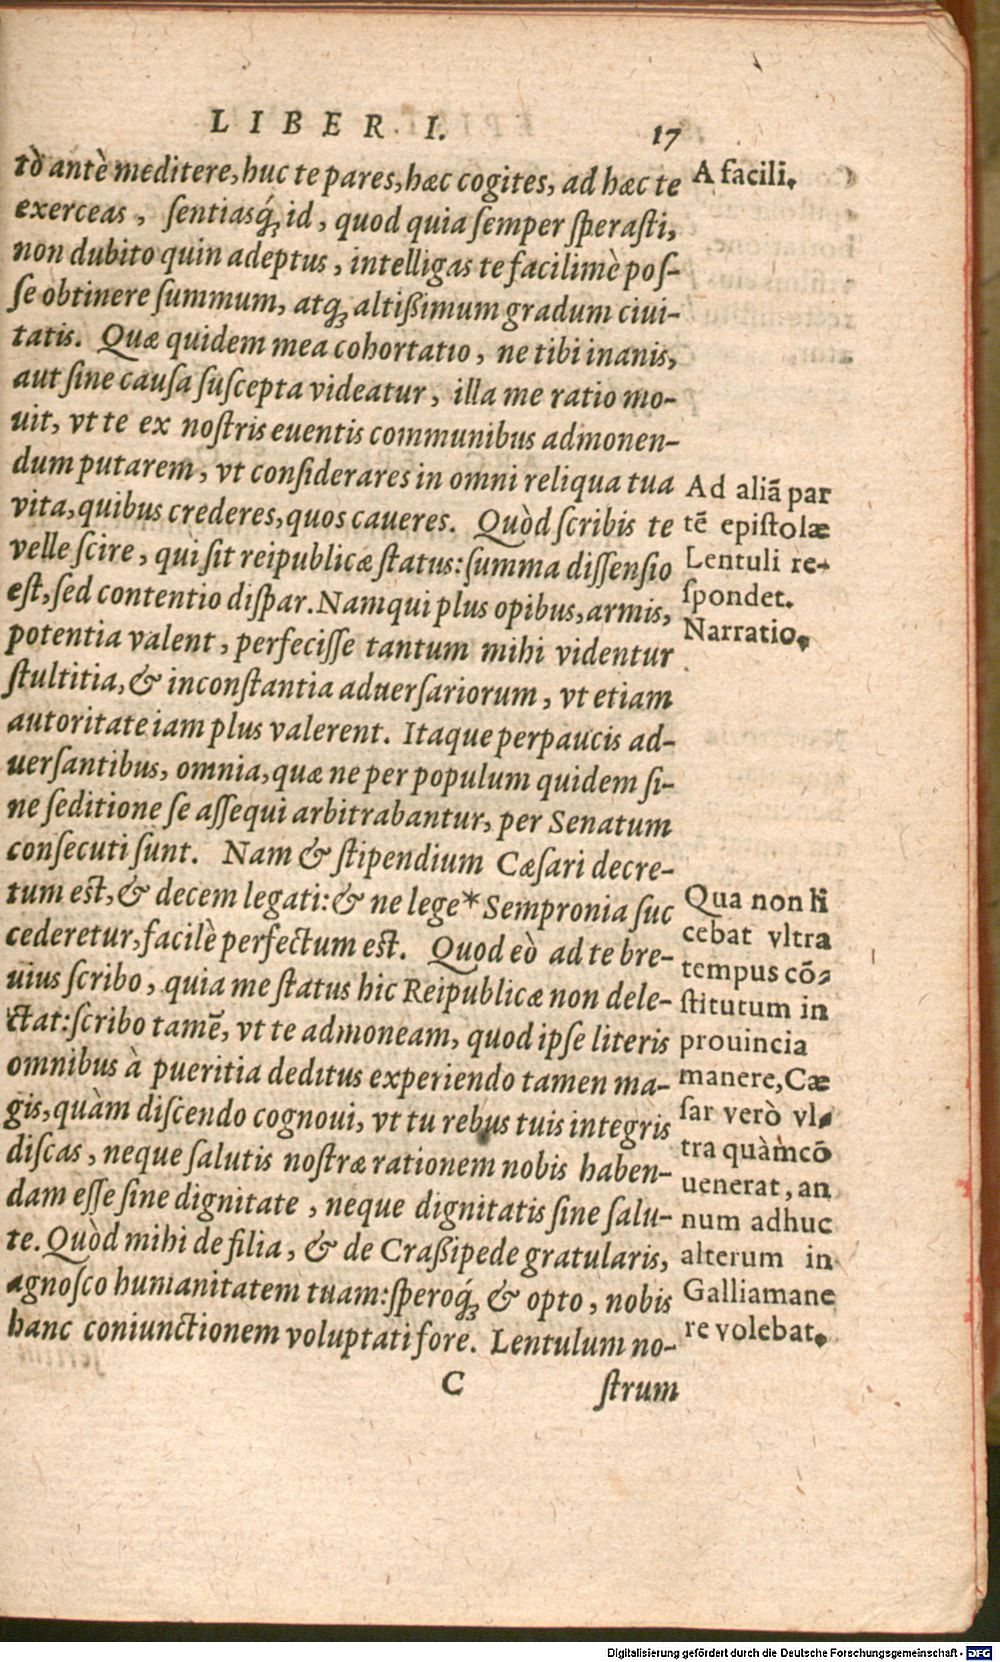 LIBER I. 17
tò antè meditere, huc te pares, hæc cogites, ad hæc te
exerceas, ſentiasq́; id, quod quia ſemper ſperaſti,
non dubito quin adeptus, intelligas te facilimè poſ-
ſe obtinere ſummum, atq; altißimum gradum ciui-
tatis. Quæ quidem mea cohortatio, ne tibi inanis,
aut ſine cauſa ſuſcepta videatur, illa me ratio mo-
uit, vt te ex noſtris euentis communibus admonen-
dum putarem, vt conſiderares in omni reliqua tua
vita, quibus crederes, quos caueres. Quòd ſcribis te
velle ſcire, qui ſit reipublicæ ſtatus: ſumma diſſenſio
eſt, ſed contentio diſpar. Nam qui plus opibus, armis,
potentia valent, perfeciſſe tantum mihi videntur
ſtultitia, & inconſtantia aduerſariorum, vt etiam
autoritate iam plus valerent. Itaque perpaucis ad-
uerſantibus, omnia, quæ ne per populum quidem ſi-
ne ſeditione ſe aſſequi arbitrabantur, per Senatum
conſecuti ſunt. Nam & ſtipendium Cæſari decre-
tum eſt, & decem legati: & ne lege* Sempronia ſuc
cederetur, facilè perfectum eſt. Quod eò ad te bre-
uius ſcribo, quia me ſtatus hic Reipublicæ non dele-
ctat: ſcribo tamẽ, vt te admoneam, quod ipſe literis
omnibus à pueritia deditus experiendo tamen ma-
gis, quàm diſcendo cognoui, vt tu rebus tuis integris
diſcas, neque ſalutis noſtræ rationem nobis haben-
dam eſſe ſine dignitate, neque dignitatis ſine ſalu-
te. Quòd mihi de filia, & de Craßipede gratularis,
agnoſco humanitatem tuam: ſperoq́; & opto, nobis
hanc coniunctionem voluptati fore. Lentulum no-
C ſtrum
A facili.
Ad aliã par
tẽ epiſtolæ
Lentuli re-
ſpondet.
Narratio.
Qua non li
cebat vltra
tempus cõ-
ſtitutum in
prouincia
manere, Cæ
ſar verò vl-
tra quàm cõ
uenerat, an
num adhuc
alterum in
Gallia mane
re volebat.
Digitalisierung gefördert durch die Deutsche Forschungsgemeinschaft - DFG